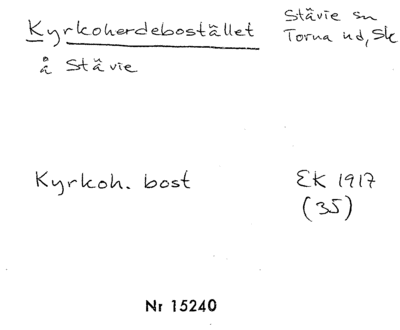 Kyrkoherdebostället
å Stävie
Stävie sn
Torna hd, Sk
Kyrkoh. bost
EK 1917
(35)
Nr 15240